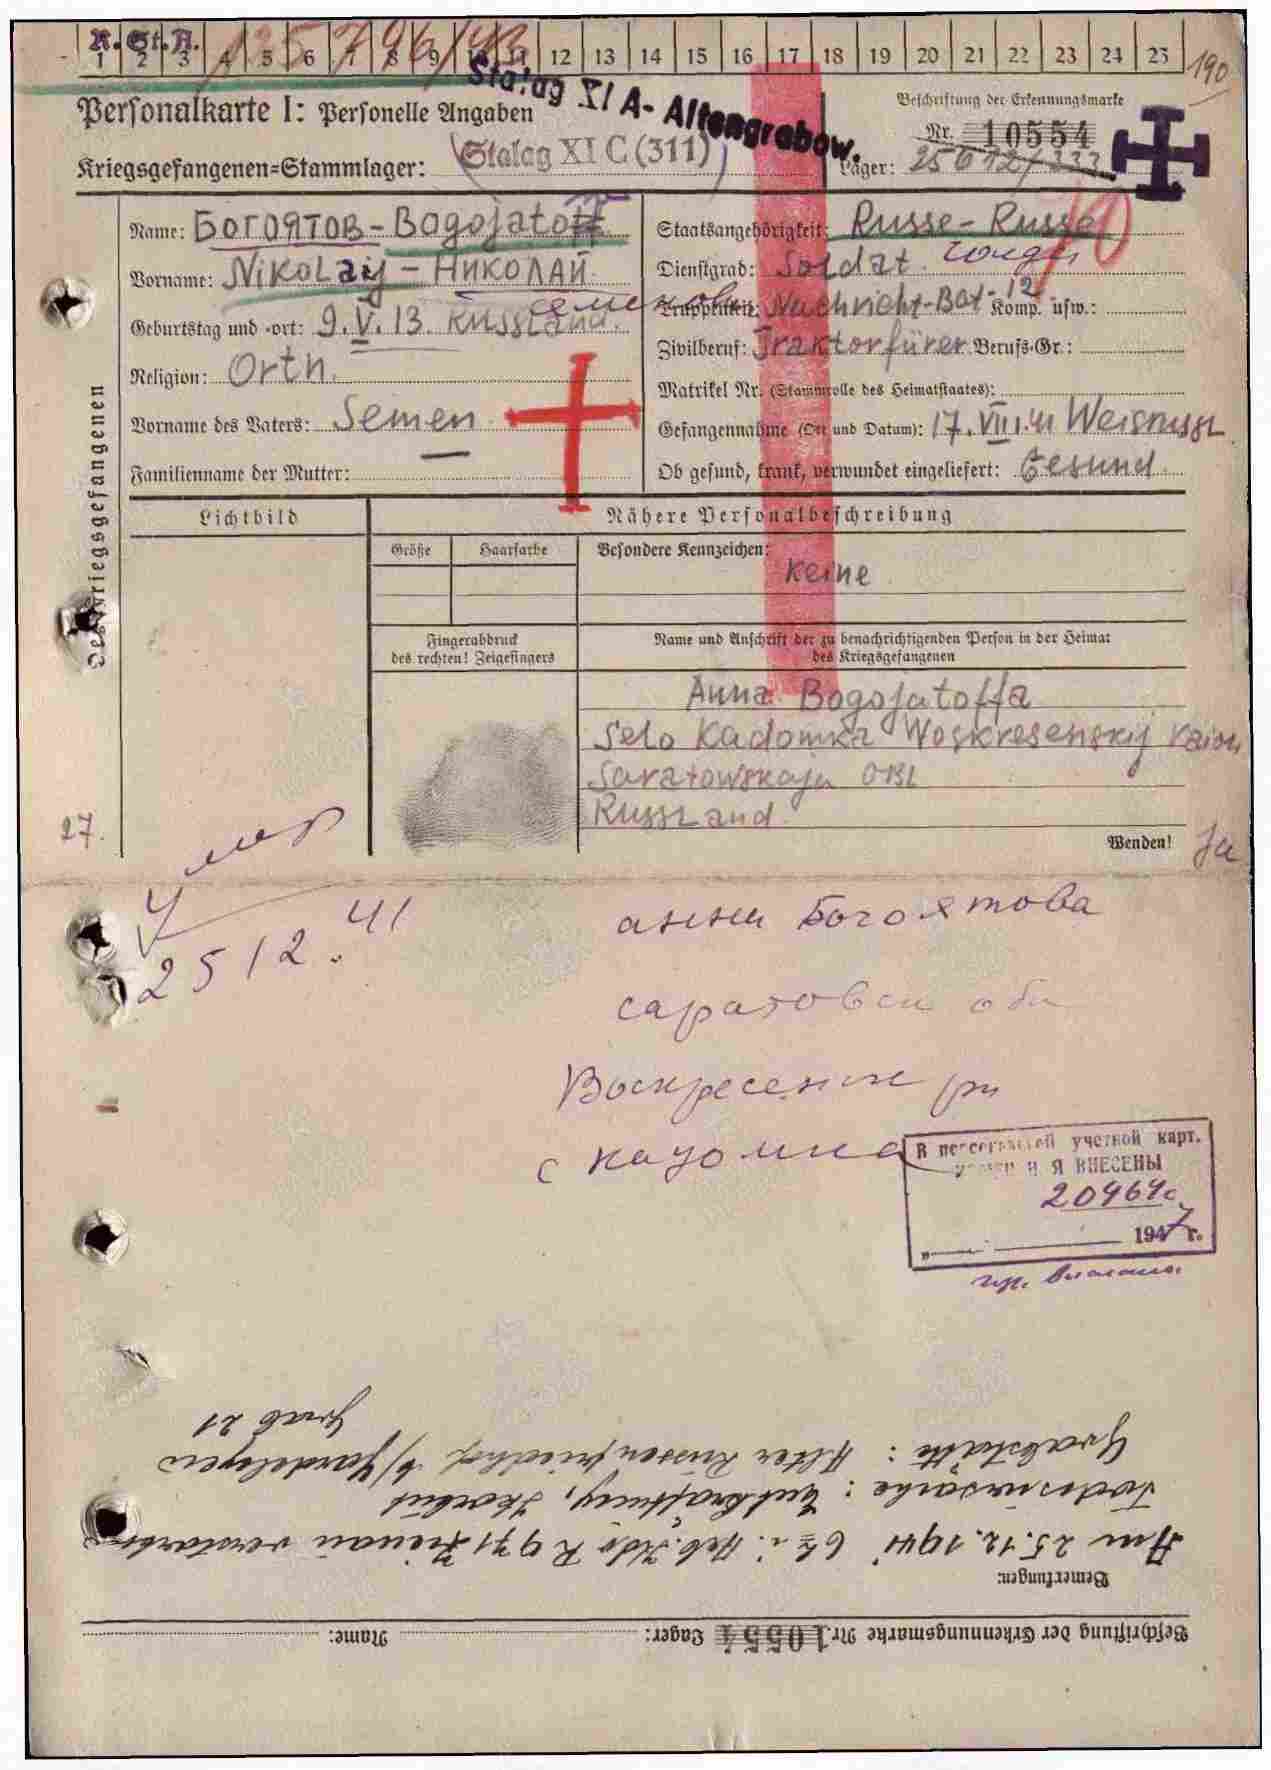 K. St. A. 125796/42
1 2 3 4 5 6 7 8 9 10 11 12 13 14 15 16 17 18 19 20 21 22 23 24 25
190
Stalag XI A - Altengrabow.
Personalkarte I: Personelle Angaben
Beschriftung der Erkennungsmarke
Nr. 10554
Kriegsgefangenen=Stammlager: Stalag XI C (311)
Lager:
Des Kriegsgefangenen
Name: Богоятов - Bogojatoff
Staatsangehörigkeit: Russe - Russe
Vorname: Nikolaij - Николай
Dienstgrad: Soldat
Truppenteil: Nachricht-Bat-12 Komp. usw.:
Geburtstag und -ort: 9. V. 13. Russland.
Zivilberuf: Traktorfürer Berufs-Gr.:
Religion: Orth.
Matrikel Nr. (Stammrolle des Heimatstaates):
Vorname des Vaters: Semen
Gefangennahme (Ort und Datum): 17. VIII. 41 Weisrussl
Familienname der Mutter: —
Ob gesund, krank, verwundet eingeliefert: Gesund
Lichtbild
Nähere Personalbeschreibung
Größe Haarfarbe Besondere Kennzeichen:
keine
Fingerabdruck
des rechten! Zeigefingers
Name und Anschrift der zu benachrichtigenden Person in der Heimat
des Kriegsgefangenen
Anna Bogojatoffa
Selo Kadomka Woskresenskij raion
Saratowskaja OBL
Russland
27.
Wenden!
Ja
умер
25 12. 41
анни Богоятова
саратовск обл
Воскресенск рн
с кадомка
В персональной учетной карт.
ВНЕСЕНЫ
20464с
1947 г.
Beschriftung der Erkennungsmarke Nr. 10554 Lager: Name:
Bemerkungen:
Am 25.12.1941 i. Arb. Kdo R 971 Zienau verstorben
Todesursache: Entkräftung, Skorbut
Grabstätte: Alter Russenfriedhof b/Gardelegen
Grab 21